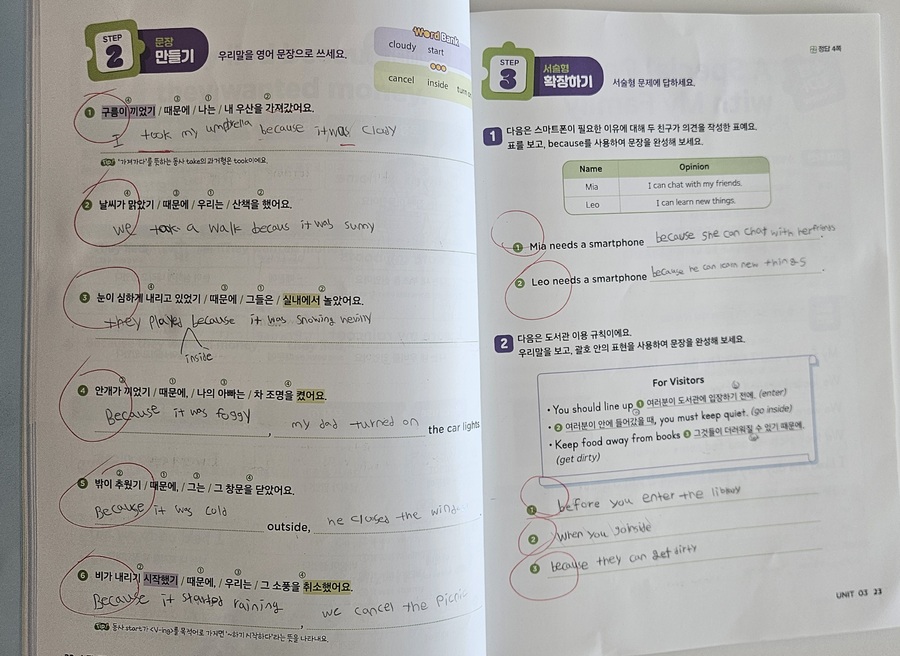 STEP 2 문장 만들기 우리말을 영어 문장으로 쓰세요.
Word Bank
cloudy start
cancel inside
④ ③ ① ②
1 구름이 끼었기 / 때문에 / 나는 / 내 우산을 가져갔어요.
I took my umbrella because it was clody
Tip! '가져가다'를 뜻하는 동사 take의 과거형은 took이에요.
④ ③ ① ②
2 날씨가 맑았기 / 때문에 / 우리는 / 산책을 했어요.
we took a walk becaus it was sunny
④ ③ ① ②
3 눈이 심하게 내리고 있었기 / 때문에 / 그들은 / 실내에서 놀았어요.
they played because it was snowing
inside
② ① ③ ④
4 안개가 끼었기 / 때문에, / 나의 아빠는 / 차 조명을 켰어요.
Because it was foggy, my dad turned on the car lights
② ① ③ ④
5 밖이 추웠기 / 때문에, / 그는 / 그 창문을 닫았어요.
Because it was cold outside, he closed the
② ① ③ ④
6 비가 내리기 시작했기 / 때문에, / 우리는 / 그 소풍을 취소했어요.
Because it started raining, we cancel the picnic
Tip! 동사 start가 <V-ing>를 목적어로 가지면 '~하기 시작하다'라는 뜻을 나타내요.
정답 4쪽
STEP 3 서술형 확장하기 서술형 문제에 답하세요.
1 다음은 스마트폰이 필요한 이유에 대해 두 친구가 의견을 작성한 표예요.
표를 보고, because를 사용하여 문장을 완성해 보세요.
Name Opinion
Mia I can chat with my friends.
Leo I can learn new things.
1 Mia needs a smartphone because she can chat with her friends.
2 Leo needs a smartphone because he can learn new things.
2 다음은 도서관 이용 규칙이에요.
우리말을 보고, 괄호 안의 표현을 사용하여 문장을 완성해 보세요.
For Visitors
• You should line up 1 여러분이 도서관에 입장하기 전에. (enter)
• 2 여러분이 안에 들어갔을 때, you must keep quiet. (go inside)
• Keep food away from books 3 그것들이 더러워질 수 있기 때문에.
(get dirty)
1 before you enter the library
2 when you go inside
3 because they can get dirty
UNIT 03 23